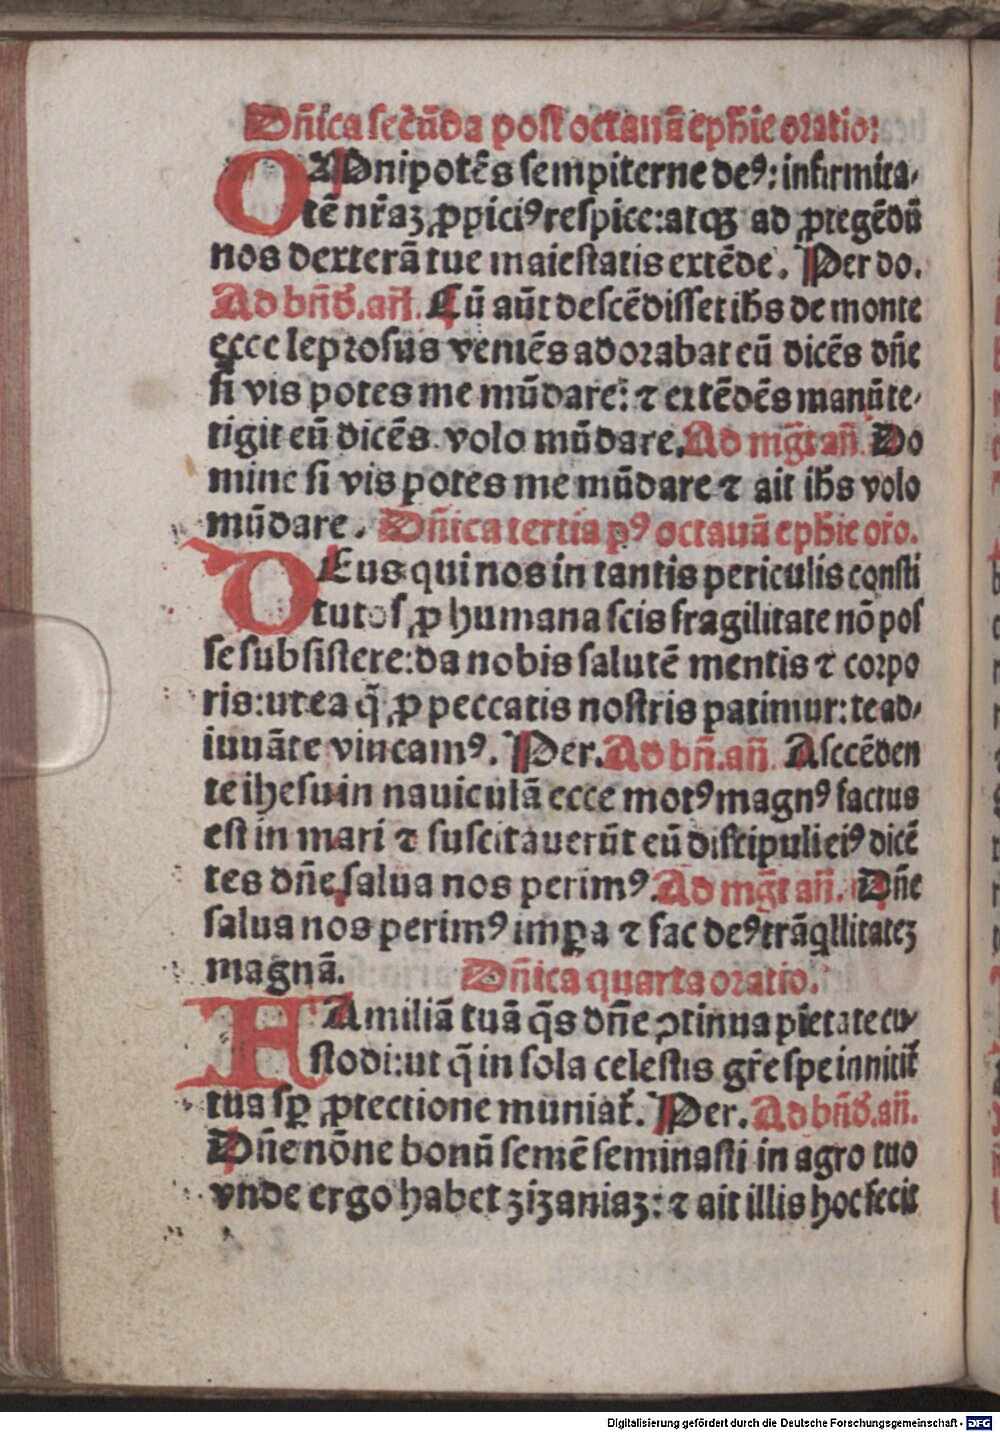 Dñica secũda post octauã ephie oratio:
OMnipotẽs sempiterne deꝰ: infirmita⸗
tẽ nr̃aꝫ ꝓpiciꝰ respice: atqꝫ ad ꝓtegẽdũ
nos dexterã tue maiestatis extẽde. Per do.
Ad bñd. añ. Cũ aũt descẽdisset ihs de monte
ecce leprosus veniẽs adorabat eũ dicẽs dñe
si vis potes me mũdare: ⁊ extẽdẽs manũ te⸗
tigit eũ dicẽs volo mũdare. Ad mg̃t añ. Do
mine si vis potes me mũdare ⁊ ait ihs volo
mũdare. Dñica tertia pꝰ octauã ephie or̃o.
DEus qui nos in tantis periculis consti
tutos ꝓ humana scis fragilitate nõ pos
se subsistere: da nobis salutẽ mentis ⁊ corpo
ris: ut ea q̃ ꝓ peccatis nostris patimur: te ad⸗
iuuãte vincamꝰ. Per. Ad bñ. añ. Asccẽden
te ihesu in nauiculã ecce motꝰ magnꝰ factus
est in mari ⁊ suscitauerũt eũ discipuli eiꝰ dicẽ
tes dñe salua nos perimꝰ. Ad mg̃t añ. Dñe
salua nos perimꝰ impꝑa ⁊ fac deꝰ trãqllitateꝫ
magnã. Dñica quarta oratio.
FAmiliã tuã q̃s dñe ꝯtinua pietate cu⸗
stodi: ut q̃ in sola celestis gr̃e spe innitit̃
tua sꝑ ꝓtectione muniat̃. Per. Ad bñd. añ.
Dñe nõne bonũ semẽ seminasti in agro tuo
vnde ergo habet zizaniaꝫ: ⁊ ait illis hoc fecit
Digitalisierung gefördert durch die Deutsche Forschungsgemeinschaft - DFG